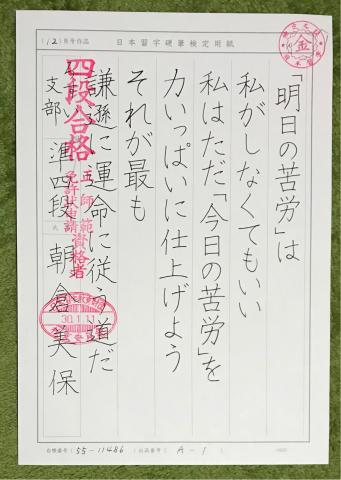 (12)月号作品
日本習字硬筆検定用紙
「明日の苦労」は
私がしなくてもいい
私はただ「今日の苦労」を
力いっぱいに仕上げよう
それが最も
謙遜に運命に従う道だ
支部
準四段 朝倉美保
四段合格
正師範資格者
免許状申請
金
30.1.11
55-11486
A-1